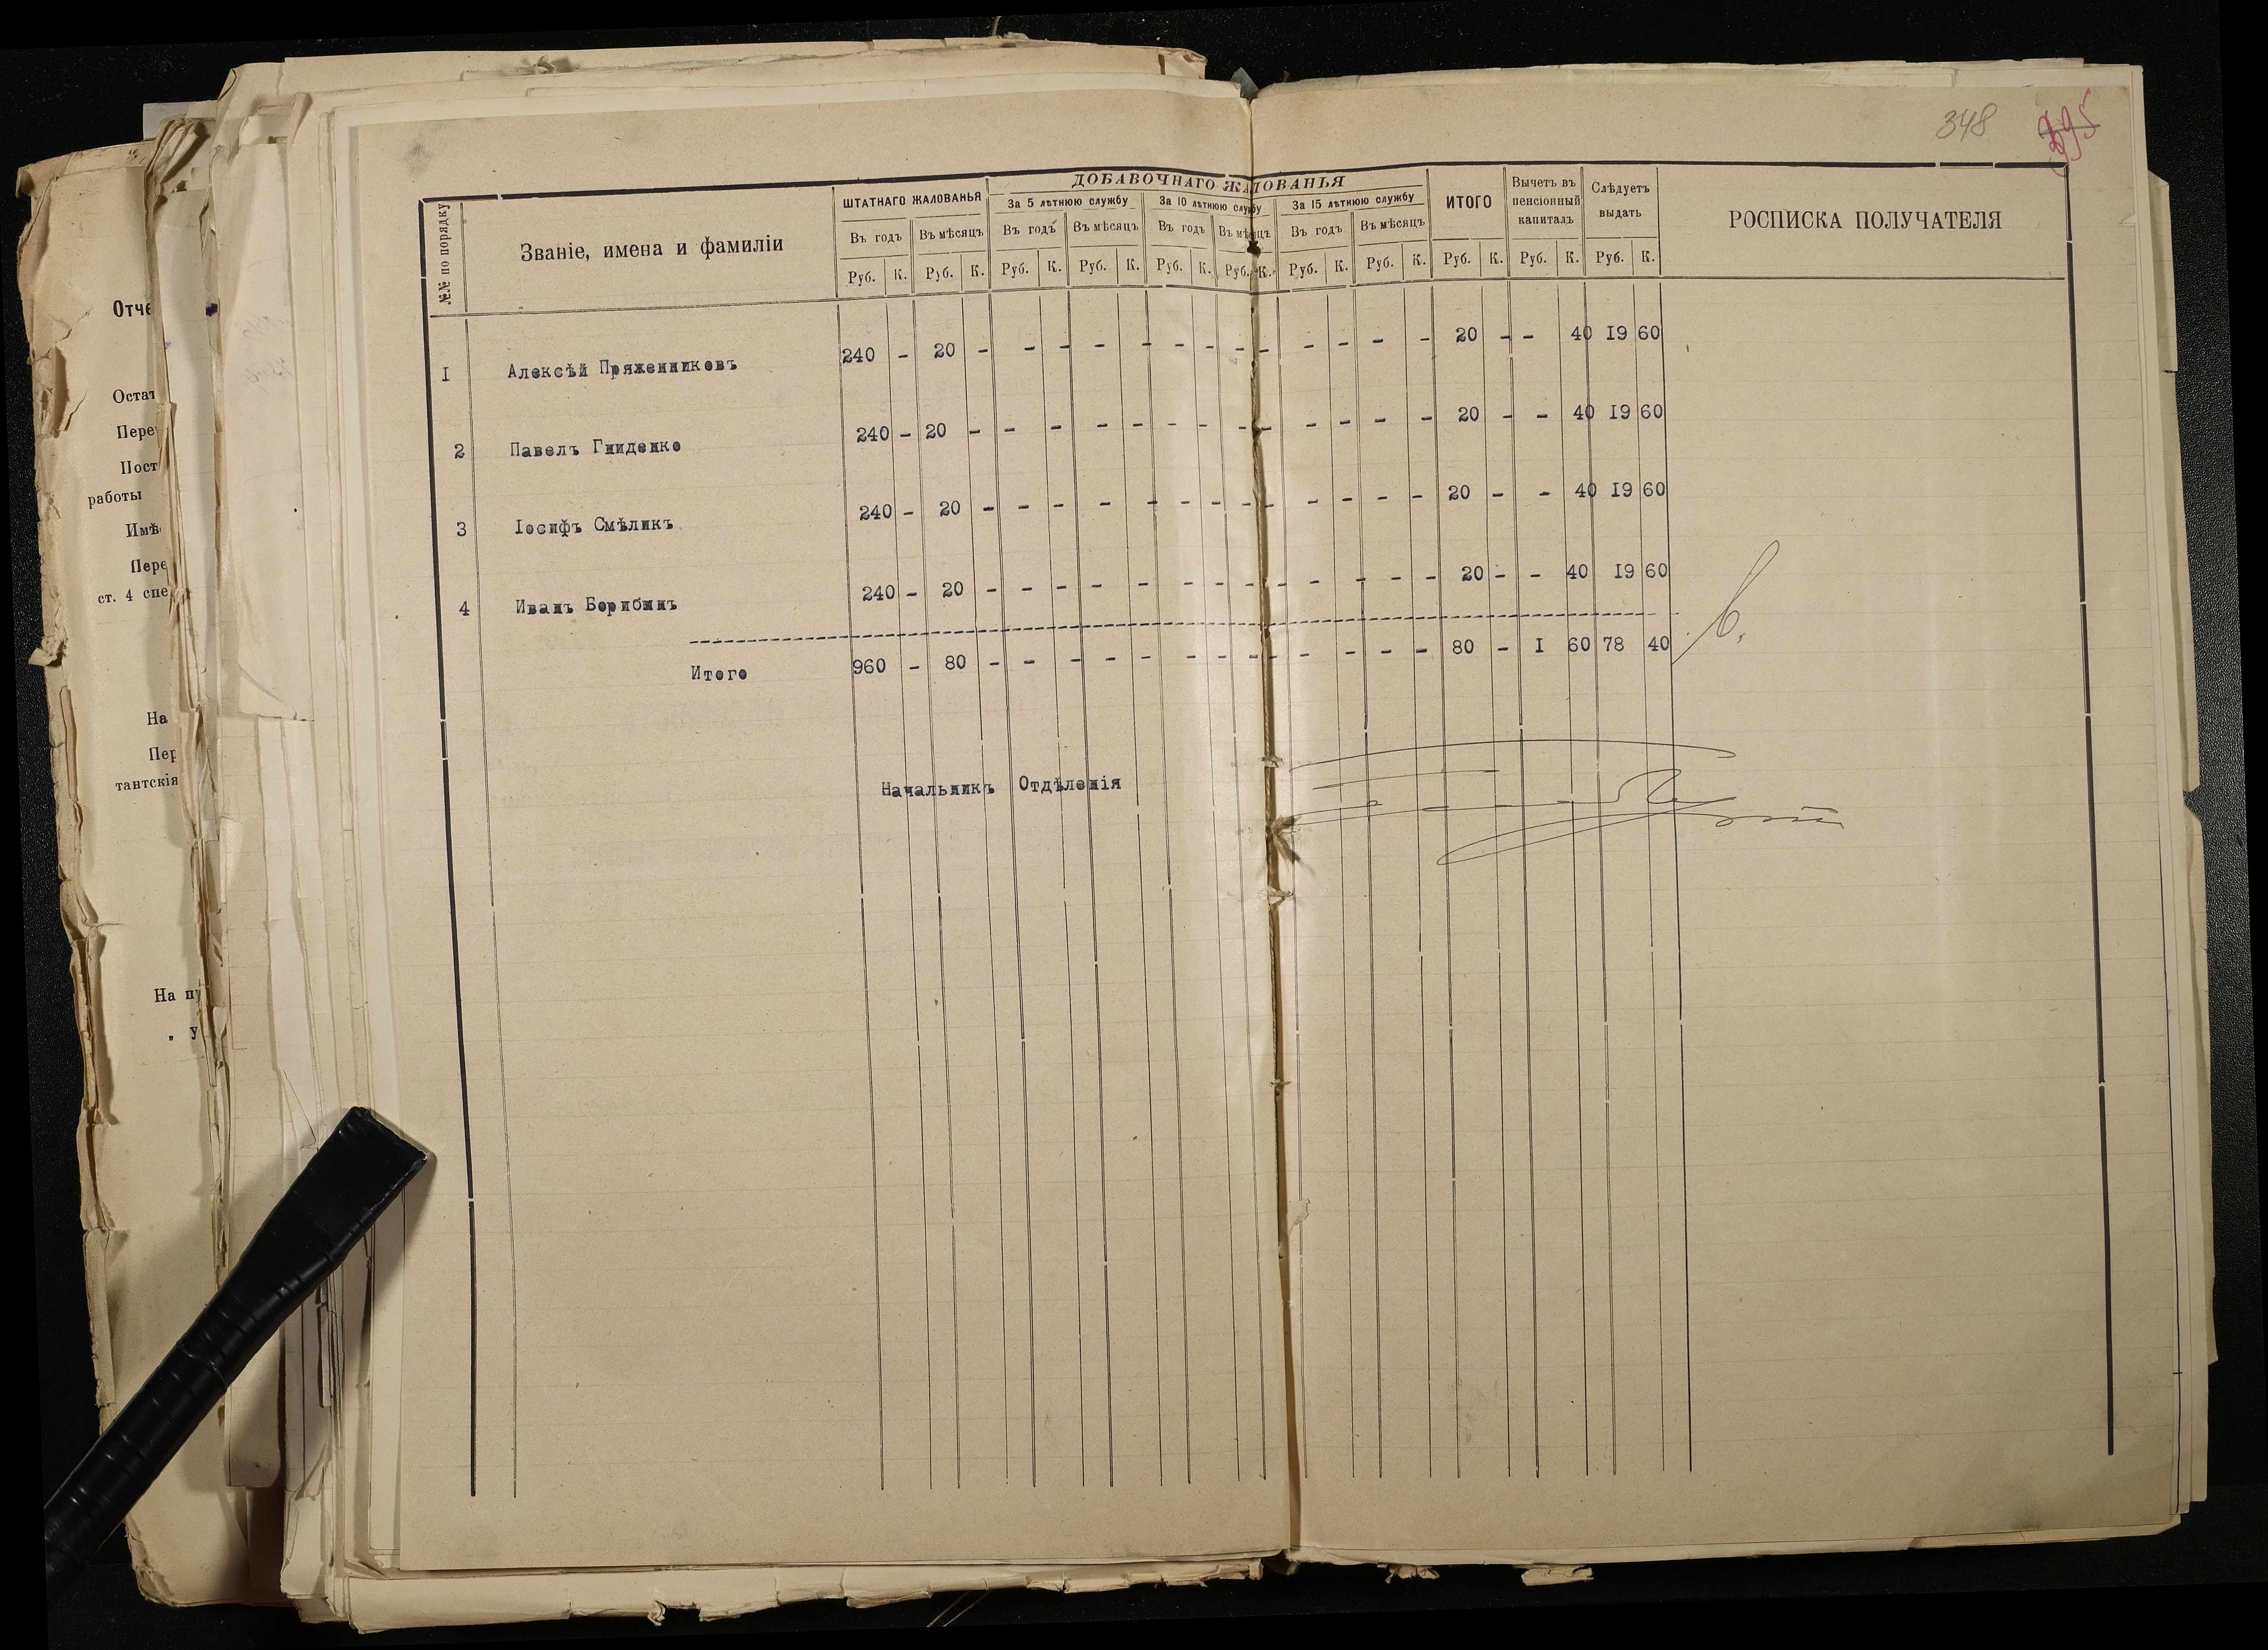 348
395
ДОБАВОЧНАГО ЖАЛОВАНЬЯ
№№ по порядку
Званіе, имена и фамиліи
ШТАТНАГО ЖАЛОВАНЬЯ
За 5 лѣтнюю службу За 10 лѣтнюю службу За 15 лѣтнюю службу
ИТОГО
Вычетъ въ пенсіонный капиталъ
Слѣдуетъ выдать
РОСПИСКА ПОЛУЧАТЕЛЯ
Въ годъ Въ мѣсяцъ Въ годъ Въ мѣсяцъ Въ годъ Въ мѣсяцъ Въ годъ Въ мѣсяцъ
Руб. К. Руб. К. Руб. К. Руб. К. Руб. К. Руб. К. Руб. К. Руб. К. Руб. К. Руб. К. Руб. К.
I Алексѣй Пряженниковъ 240 - 20 - - - - - - - - - - - - - 20 - - 40 I9 60
2 Павелъ Гниденко 240 - 20 - - - - - - - - - - - - - 20 - - 40 I9 60
3 Іосифъ Смѣликъ 240 - 20 - - - - - - - - - - - - - 20 - - 40 I9 60
4 Иванъ Борибинъ 240 - 20 - - - - - - - - - - - - - 20 - - 40 I9 60
Итого 960 - 80 - - - - - - - - - - - - - 80 - I 60 78 40
Начальникъ Отдѣленія
Отче
Остат
Пере
Пост
работы
Имѣ
Пере
ст. 4 спе
На
Пер
тантскія
На пу
„ у